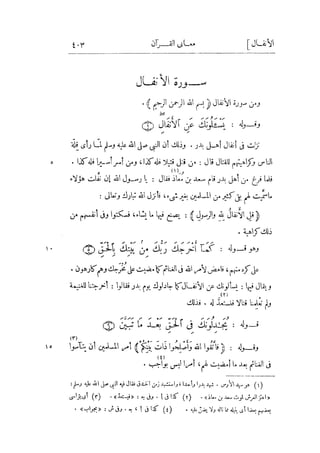 الأنفال ] معانى القرآن ٤٠٣
ســـورة الأنفــال
ومن سورة الأنفال ( بسم الله الرحمن الرحيم ) .
وقـــوله : يَسْـَٔلُونَكَ عَنِ الْأَنْفَالِ ①
نزلت فى أنفال أهــل بدر . وذلك أن النبى صلى الله عليه وسلم لمــا رأى قِلّة
الناس وكراهيتهم للقتال قال : من قتل قتيلا فله كذا ، ومن أسر أسيرا فله كذا . ٥
فلما فرغ من أهل بدر قام سعد بن معاذ (١) فقال : يا رسول الله إن نفّلت هؤلاء
ما سمّيت لهم بقى كثير من المســلمين بغير شىء ، فأنزل الله تبارك وتعالى :
( قل الأنفال لله والرسول ) : يصنع فيها ما يشاء ، فسكتوا وفى أنفسهم من
ذلك كراهية .
وهو قــوله : كَمَآ أَخْرَجَكَ رَبُّكَ مِنْ بَيْتِكَ بِالْحَقِّ ⑤ ١٠
على كره منهم ، فامض لأمر الله فى الغنائم كما مضيت على مُخرجك وهم كارهون .
ويقال فيها : يسألونك عن الأنفال كما جادلوك يوم بدر فقالوا : أخرجتنا للغنيمة
ولم تُعلمنا قتالا فنستعدّ له (٢) . فذلك
قــوله : يُجَـٰدِلُونَكَ فِى الْحَقِّ بَعْدَ مَا تَبَيَّنَ ⑥
وقوله : ( فاتقوا الله وأصلحوا ذات بينكم ) أمر المســلمين أن يتآسوا (٣) ١٥
فى الغنائم بعد ما أمضيت لهم ، أمرا ليس بواجب (٤) .
(١) هو سيد الأوس . شهد بدرا وأحدا ، واستشهد زمن الخندق فقال فيه النبى صلى الله عليه وسلم :
« اهتز العرش لموت سعد بن معاذ » . (٢) كذا فى ا . وفى ش :
بعضهم بعدا أى